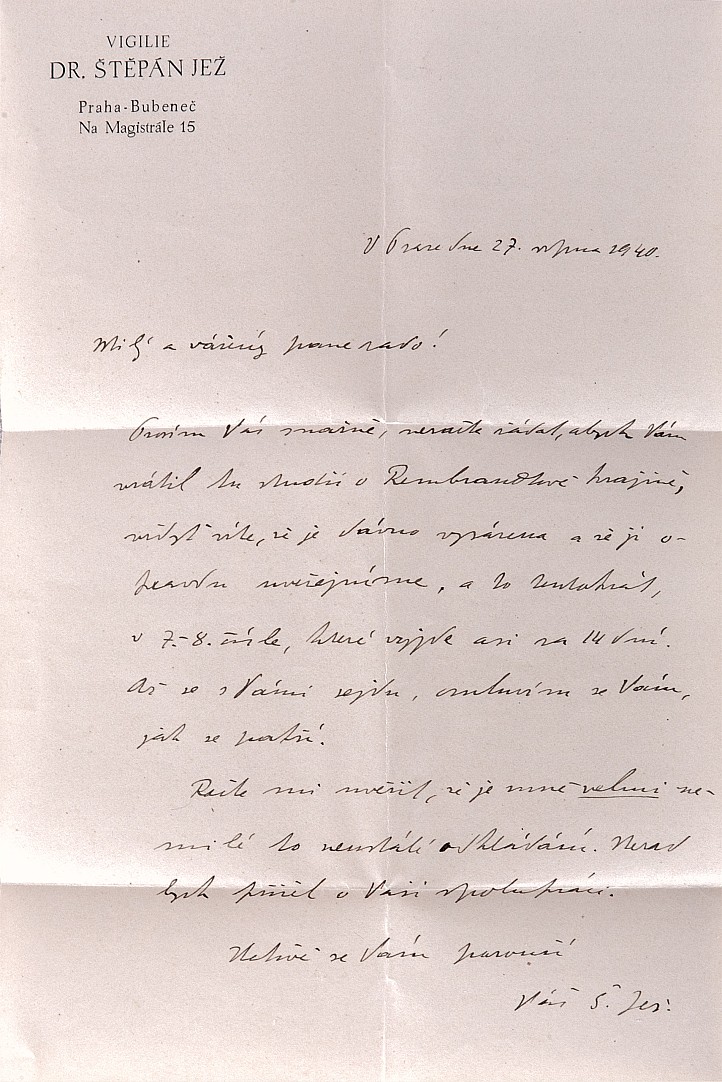 VIGILIE
DR. ŠTĚPÁN JEŽ
Praha-Bubeneč
Na Magistrále 15
V Praze dne 27. srpna 1940.
Milý a vážený pane rado!
Prosím Vás snažně, neračte žádat, abych Vám
vrátil tu studii o Rembrandtově krajině,
vždyť víte, že je dávno vysázena a že ji o-
pravdu uveřejníme, a to tentokrát,
v 7.-8. čísle, které vyjde asi za 14 dní.
Až se s Vámi sejdu, omluvím se Vám,
jak se patří.
Račte mi uvěřit, že je mně velmi ne-
milé to neustálé odkládání. Nerad
bych přišel o Vaši spolupráci.
Uctivě se Vám poroučí
Váš Š. Jež.